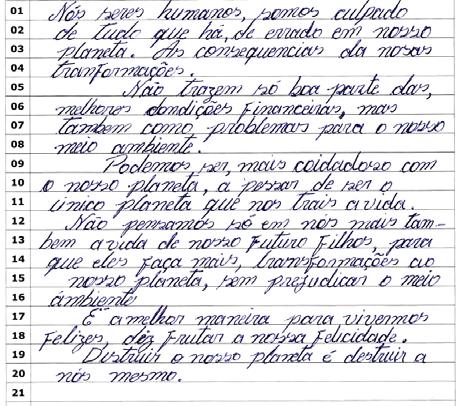 01 Nós seres humanos, somos culpado
02 de tudo que há, de errado em nosso
03 planeta. As consequencias da nosas
04 transformações.
05 Não trazem só boa parte das,
06 melhores condições financeiras, mas
07 tambem como problemas para o nosso
08 meio ambiente.
09 Podemos ser, mais coidadoso com
10 o nosso planeta, a pessar de ser o
11 único planeta que nos trais a vida.
12 Não pensamos só em nós mais tam-
13 bem a vida de nosso Futuro Filhos, para
14 que eles faça mais, transformações ao
15 nosso planeta, sem prejudicar o meio
16 ámbiente
17 É a melhor maneira para vivermos
18 Felizes, déz Frutar a nossa Felicidade.
19 Distruir o nosso planeta é destruir a
20 nós mesmo.
21